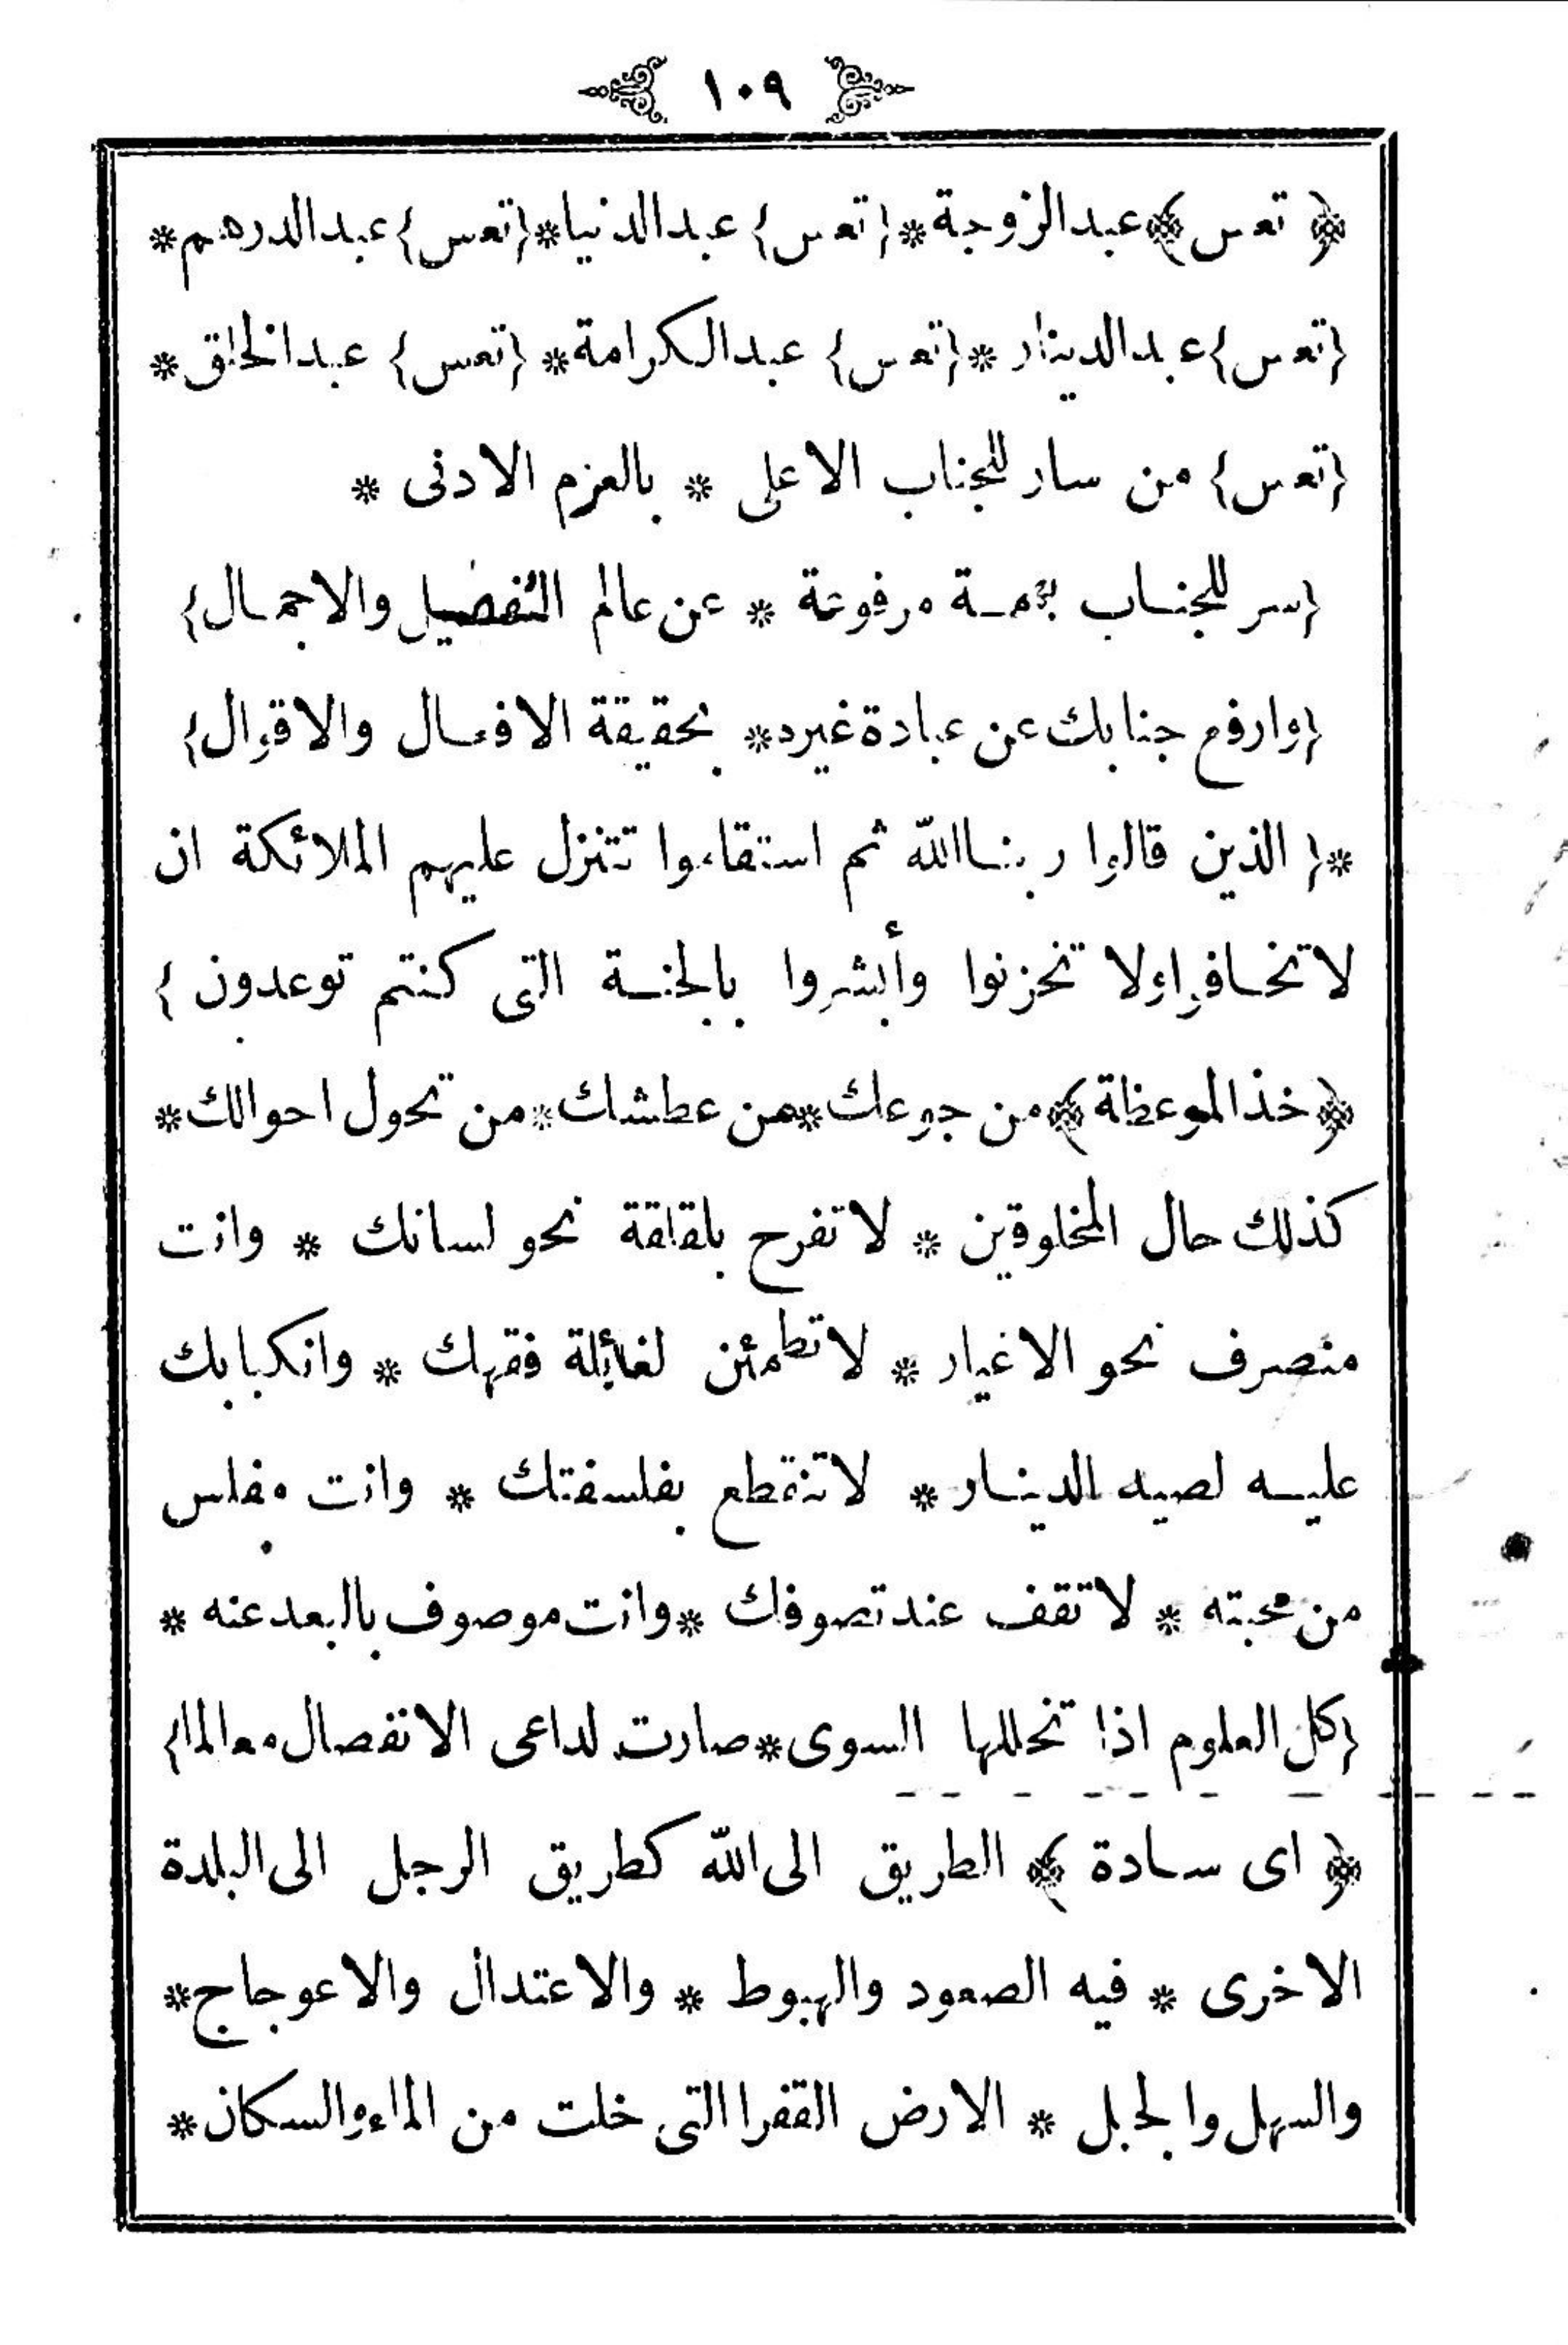 ١٠٩
﴿ تعس ﴾ عبد الزوجة * { تعس } عبد الدنيا * { تعس } عبد الدرهم *
{ تعس } عبد الدينار * { تعس } عبد الكرامة * { تعس } عبد الخلق *
{ تعس } من سار للجناب الاعلى * بالعزم الادنى *
{ سر للجناب بهمة مرفوعة * عن عالم التفضيل والاجمال }
{ وارفع جنابك عن عبادة غيره * بحقيقة الافعال والاقوال }
* { الذين قالوا ربنا الله ثم استقاموا تتنزل عليهم الملائكة ان
لا تخافوا ولا تحزنوا وأبشروا بالجنة التى كنتم توعدون }
﴿ خذ الموعظة ﴾ من جوعك * من عطشك * من تحول احوالك *
كذلك حال المخلوقين * لا تفرح بلقلقة نحو لسانك * وانت
منصرف نحو الاغيار * لا تطمئن لغائلة فقهك * وانكبابك
عليه لصيد الدينار * لا تنقطع بفلسفتك * وانت مفلس
من محبته * لا تقف عند تصوفك * وانت موصوف بالبعد عنه *
{ كل العلوم اذا تخللها السوى * صارت لداعى الانفصال معالما }
﴿ اى سادة ﴾ الطريق الى الله كطريق الرجل الى البلدة
الاخرى * فيه الصعود والهبوط * والاعتدال والاعوجاج *
والسهل والجبل * الارض القفرا التى خلت من الماء والسكان *